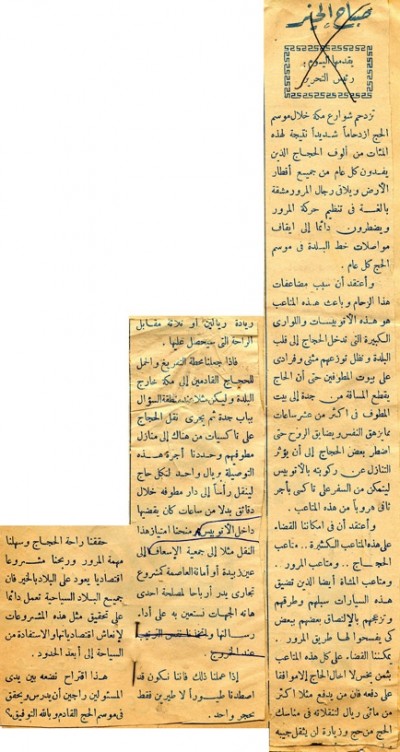 صباح الخير
يقدمها اليوم:
رئيس التحرير
تزدحم شوارع مكة خلال موسم
الحج ازدحاماً شديداً نتيجة لهذه
المئات من ألوف الحجاج الذين
يفدون كل عام من جميع أقطار
الأرض ويلاقى رجال المرور مشقة
بالغة فى تنظيم حركة المرور
ويضطرون دائماً إلى ايقاف
مواصلات خط البلدة فى موسم
الحج كل عام.
وأعتقد أن سبب مضاعفات
هذا الزحام وباعث هذه المتاعب
هو هذه الأتوبيسات واللوارى
الكبيرة التى تدخل الحجاج إلى قلب
البلدة وتظل توزعهم مثنى وفرادى
على بيوت المطوفين حتى أن الحاج
يقطع المسافة من جدة إلى بيت
المطوف فى أكثر من عشر ساعات
مما يزهق النفس ويضايق الروح حتى
اضطر بعض الحجاج إلى أن يؤثر
التنازل عن ركوبته بالأتوبيس
ليتمكن من السفر على تاكسى بأجر
تافه هروباً من هذه المتاعب.
وأعتقد أن فى امكاننا القضاء
على هذه المتاعب الكثيرة.. متاعب
الحجاج.. ومتاعب المرور..
ومتاعب المشاة أيضا الذين تضيق
هذه السيارات سبلهم وطرقهم
وتزعجهم بالإلتصاق بعضهم ببعض
كى يفسحوا لها طريق المرور.
يمكننا القضاء على كل هذه المتاعب
بثمن بخس لا اخال الحاج إلا موافقا
على دفعه فان من يدفع مثلا أكثر
من مائى ريال لتنقلاته فى مناسك
الحج من حج وزيارة لن يثقل جيبه
زيادة ريالين أو ثلاثة مقابل
الراحة التى سيحصل عليها.
فاذا جعلنا محطة التفريغ والحمل
للحجاج القادمين إلى مكة خارج
البلدة وليكن مثلا عند منطقة السؤال
بباب جدة ثم يجرى نقل الحجاج
على تاكسيات من هناك إلى منازل
مطوفهم وحددنا أجرة هذه
التوصيلة بريال واحد لكل حاج
لينقل رأساً إلى دار مطوفه خلال
دقائق بدلا من ساعات كان يقضيها
داخل الأتوبيس، ومنحنا امتياز هذا
النقل مثلا إلى جمعية الإسعاف إلى
عين زبيدة أو أمانة العاصمة كمشروع
تجارى يدر أرباحا لمصلحة احدى
هاته الجهات نستعين به على أداء
رسالتها
عند الخروج
إذا عملنا ذلك فاننا نكون قد
اصطدنا طيوراً لا طيرين فقط
بحجر واحد.
حققنا راحة الحجاج وسهلنا
مهمة المرور وربحنا مشروعا
اقتصاديا يعود على البلاد بالخير فان
جميع البلاد السياحية تعمل دائما
على تحقيق مثل هذه المشروعات
لإنعاش اقتصادياتها والاستفادة من
السياحة إلى أبعد الحدود.
وهذا اقتراح نضعه بين يدى
المسئولين راجين أن يدرس ويحقق
فى موسم الحج القادم وبالله التوفيق؟